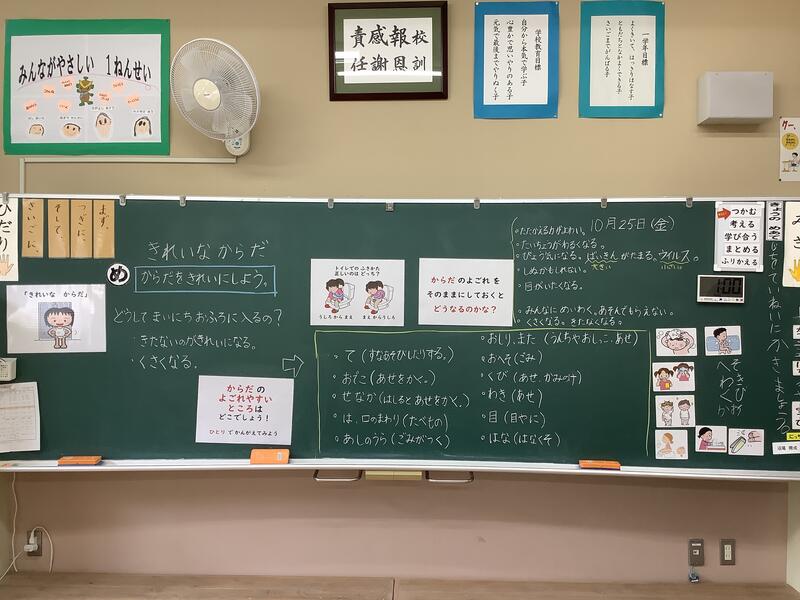 みんながやさしい 1ねんせい
校訓
報恩
感謝
責任
学校教育目標
自分から本気で学ぶ子
心豊かで思いやりのある子
元気で最後までやりぬく子
一学年目標
よくきいて、はっきりはなす子
ともだちとなかよくできる子
さいごまでがんばる子
グー、
ひだり
まず、
つぎに
そして、
さいごに、
きれいな からだ
め
からだをきれいにしよう。
「きれいな からだ」
どうして まいにち おふろに入るの?
・きたないのがきれいになる。
・くさくなる。
からだ の
よごれやすい
ところは
どこでしょう!
ひとり で かんがえてみよう
トイレでの ふきかた
正しいのは どっち?
うしろ から まえ
まえ から うしろ
からだ の よごれ を
そのままにしておくと
どうなるのかな?
10月25日(金)
・たいちょうがわるくなる。
・びょう気になる。ばいきんがたまる。ウイルス。
・しぬかもしれない。
・目がいたくなる。
・みんなに めいわく。あそんでもらえない。
・くさくなる。きたなくなる。
・て(すなあそびしたりする。)
・おでこ(あせをかく。)
・せなか(はしるとあせをかく。)
・は、口のまわり(たべもの)
・あしのうら(ごみがつく)
・おしり、また(うんちやおしっこ、あせ)
・おへそ(ごみ)
・くび(あせ、かみのけ)
・わき(あせ)
・目(目やに)
・はな(はなくそ)
つかむ
考える
学び合う
まとめる
ふりかえる
きょうの めあて
じをていねいにかきましょう。
みぎ